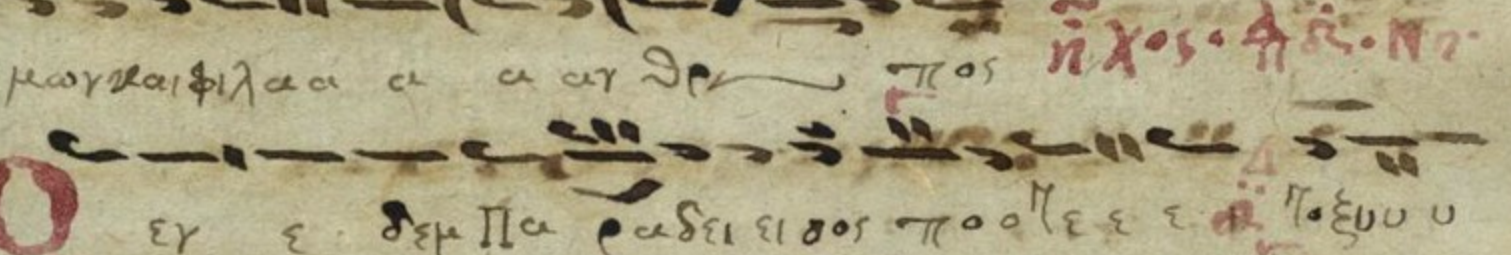 μωγ και φιλαα α α αγ θρ πος ἦχος · πλ δ · Νη ·
Ο εγ ε δεμ Πα ραδει ει σος πο ο τε ε ε το ξυυ υ